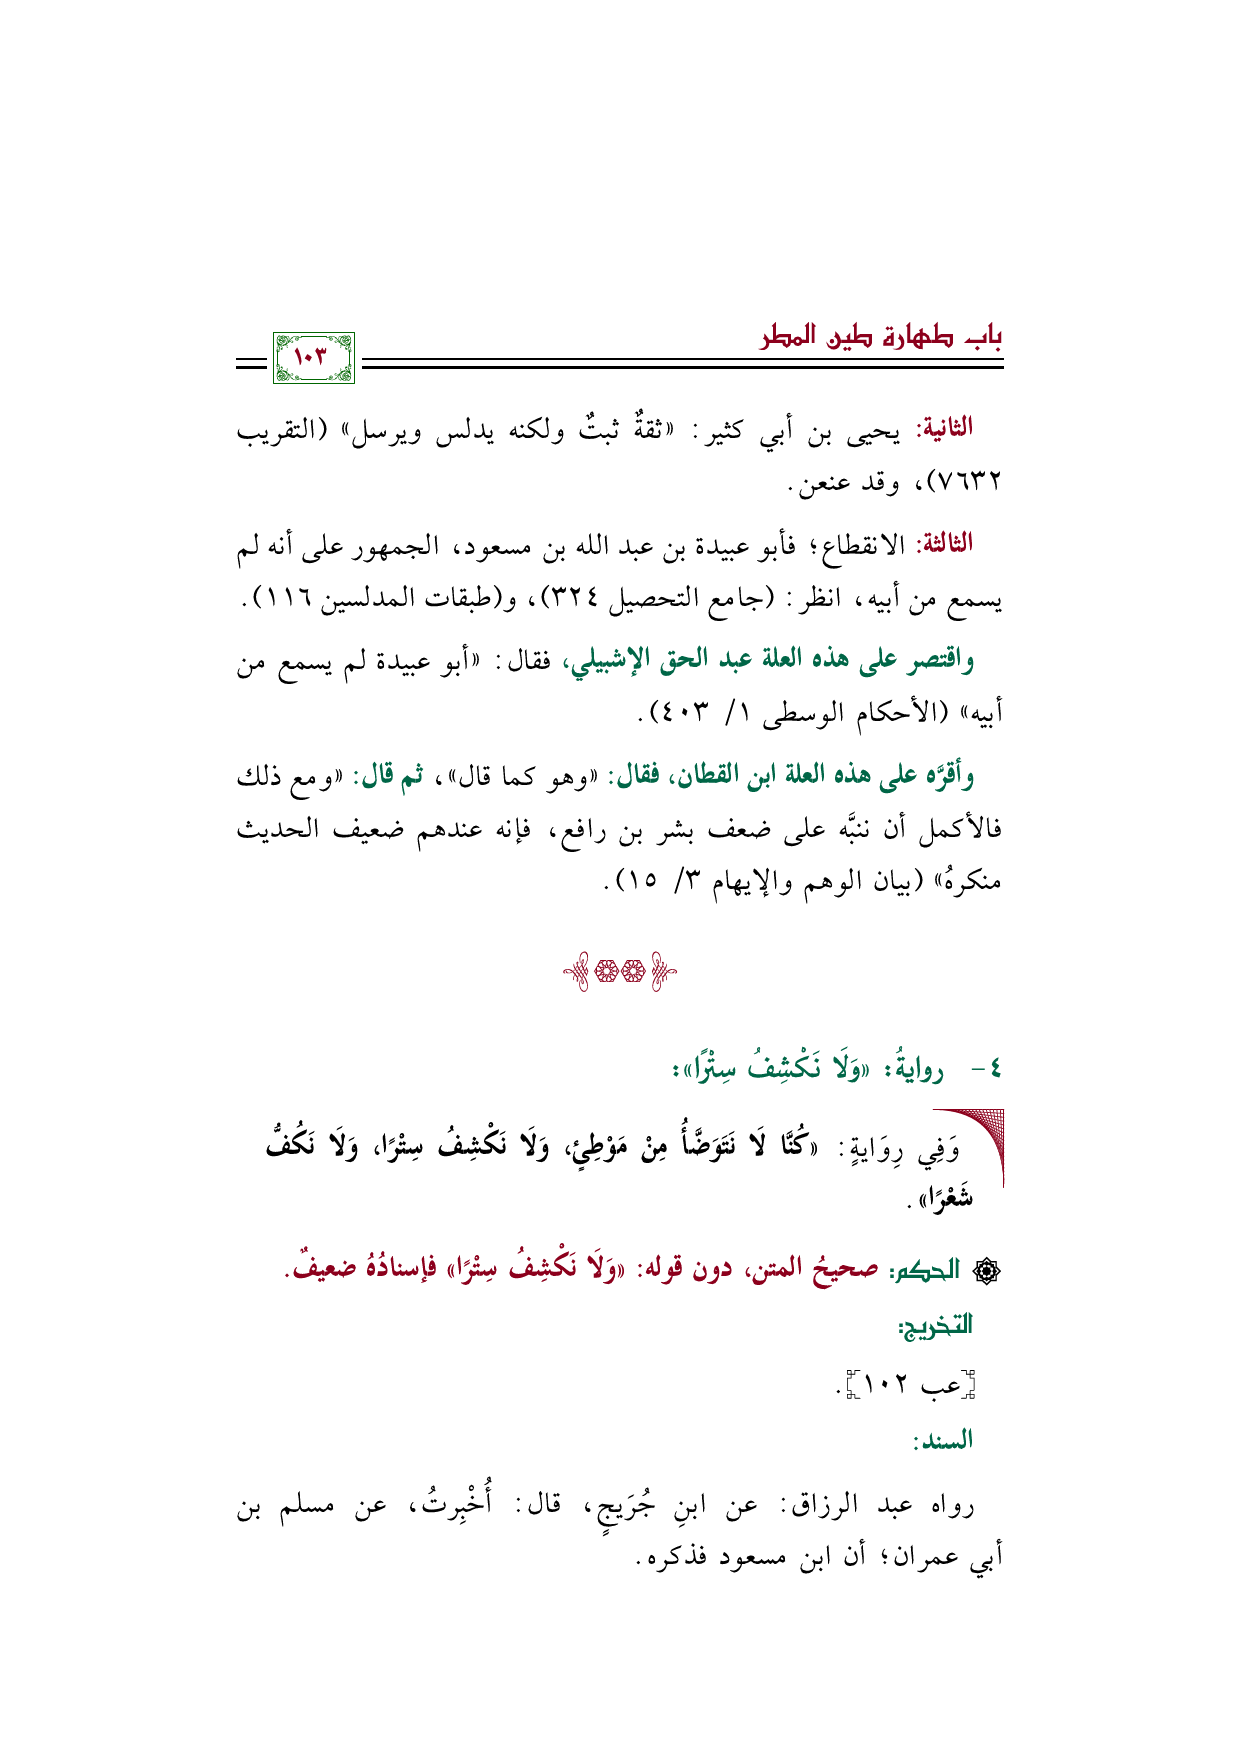 باب طهارة طين المطر
١٠٣
الثانية: يحيى بن أبي كثير: «ثقةٌ ثبتٌ ولكنه يدلس ويرسل» (التقريب
٧٦٣٢)، وقد عنعن.
الثالثة: الانقطاع؛ فأبو عبيدة بن عبد الله بن مسعود، الجمهور على أنه لم
يسمع من أبيه، انظر: (جامع التحصيل ٣٢٤)، و(طبقات المدلسين ١١٦).
واقتصر على هذه العلة عبد الحق الإشبيلي، فقال: «أبو عبيدة لم يسمع من
أبيه» (الأحكام الوسطى ١/ ٤٠٣).
وأقرَّه على هذه العلة ابن القطان، فقال: «وهو كما قال»، ثم قال: «ومع ذلك
فالأكمل أن ننبَّه على ضعف بشر بن رافع، فإنه عندهم ضعيف الحديث
منكرهُ» (بيان الوهم والإيهام ٣/ ١٥).
٤- روايةُ: «وَلَا نَكْشِفُ سِتْرًا»:
وَفِي رِوَايَةٍ: «كُنَّا لَا نَتَوَضَّأُ مِنْ مَوْطِئٍ، وَلَا نَكْشِفُ سِتْرًا، وَلَا نَكُفُّ
شَعْرًا».
الحكم: صحيحُ المتن، دون قوله: «وَلَا نَكْشِفُ سِتْرًا» فإسنادُهُ ضعيفٌ.
التخريج:
[عب ١٠٢].
السند:
رواه عبد الرزاق: عن ابنِ جُرَيجٍ، قال: أُخْبِرتُ، عن مسلم بن
أبي عمران؛ أن ابن مسعود فذكره.